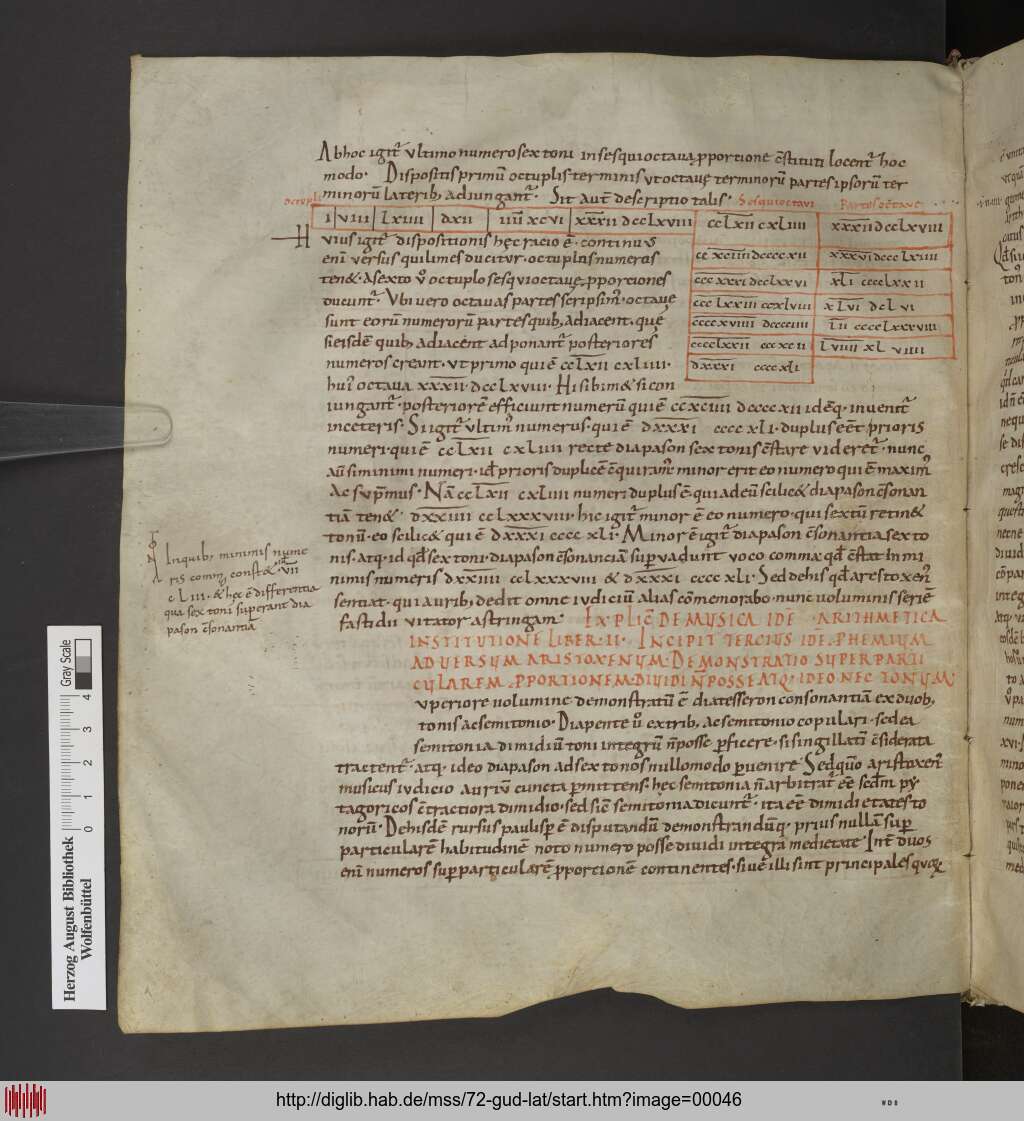 Abhoc igit̃ ultimo numero sex toni in sesquioctaua ꝓportione c̃stituti locent̃ hoc
modo· Dispositis primũ octuplis terminis ut octauę terminorũ partes ipsorũ ter
minorũ laterib; adiungant̃· Sit aut̃ descriptio talis·
octupli
Sesquioctaui
Partes octauę
i | viii | lxiiii | dxii | iiii xcvi | xxxii dcclxviii | cclxii cxliiii | xxxii dcclxviii
cc xciiii dcccc xii | xxxvi dccc lxiiii
ccc xxxi dcclxxvi | xli cccclxxii
ccc lxxiii ccxlviii | xlvi dclvi
cccc xviiii dcccciiii | lii cccclxxxviii
cccclxxii cccxcii | lviiii xlviiii
dxxxi ccccxli
Huius igit̃ dispositionis hęc racio ẽ· continuus
eni versus qui limes ducitur· octuplus numeros
tenet· a sexto ũ octuplo sesquioctauę ꝓporciones
ducunt̃· Ubi uero octauas partes scripsim̃· octauę
sunt eorũ numerorũ partes quib; adiacent· quę
si eisdẽ quib; adiacent adponant̃ posteriores
numeros creant· ut primo qui ẽ cclxii cxliiii·
hui' octaua xxxii· dcclxviii· Hi sibimet si con
iungant̃· posteriorẽ efficiunt numerũ qui ẽ ccxciiii dccccxii idẽq· inuenit̃
in ceteris· Si igit̃ ultim̃ numerus· qui ẽ dxxxi cccc xli· duplus eẽt prioris
numeri· qui ẽ cclxii cxliiii recte diapason sex tonis c̃stare uideret̃· nunc
aũ si minimi numeri· id ẽ prioris duplicẽ c̃quiram̃ minor erit eo numero qui ẽ maxim̃
Ac sup̃mus· Nã cclxii cxliiii numeri duplus ẽ· qui ad eũ scilic& diapason c̃sonan
tiã ten&· dxxiiii cclxxxviii· hic igit̃ minor ẽ eo numero· qui sextũ retin&
tonũ· eo scilic& qui ẽ dxxxi cccc xli· Minor ẽ igit̃ diapason c̃sonantia sex to
nis· atq· id qđ sex toni· diapason c̃sonanciã supuadunt uoco comma· qđ c̃stat in mi
nimis numeris dxxiiii cclxxxviii & dxxxi cccc xli· Sed de his qđ aristoxen'
sentiat· qui aurib; dedit omne iudiciũ alias cõmemorabo· nunc uoluminis seriẽ
fastidii uitator astringam·
EXPLIC̃ DE MUSICA IDẼ ARITHMETICA
INSTITUTIONE LIBER· II· INCIPIT TERCIUS IDẼ PHEMIUM
ADUERSUM ARISTOXENUM· DEMONSTRATIO SUPERPARTI
CULAREM ꝒPORTIONEM DIUIDI Ñ POSSE ATQ· IDEO NEC TONUM·
uperiore uolumine demonstratũ ẽ diatesseron consonantiã ex duob;
tonis ac semitonio· Diapente ũ ex trib; ac semitonio copulari· sed ea
semitonia dimidiũ toni integrũ ñ posse ꝑficere· si singillatĩ c̃siderata
tractent̃· atq· ideo diapason ad sex tonos nullomodo ꝑuenire· Sed quõ aristoxen'
musicus iudicio auriũ cuncta ꝑmittens· hęc semitonia ñ arbitrat̃ eẽ scđm py
tagoricos c̃tractiora dimidio· sed sic̃ semitonia dicunt̃· ita eẽ dimidietates to
norũ· De hisdẽ rursus paulisꝑ ẽ disputandũ demonstrandũq· prius nullã suꝑ
particularẽ habitudinẽ noto numero posse diuidi integra medietate· Inẽ duos
eni numeros suꝑparticularẽ ꝓporcionẽ continentes· siue illi sint principales quoꝝ
In quib; minimis nume
ris comm̃ const&· vii
cliii· & hęc ẽ differentia
qua sex toni superant dia
pason c̃sonantiã
Herzog August Bibliothek
Wolfenbüttel
0 1 2 3 4
Gray Scale
http://diglib.hab.de/mss/72-gud-lat/start.htm?image=00046
WDB